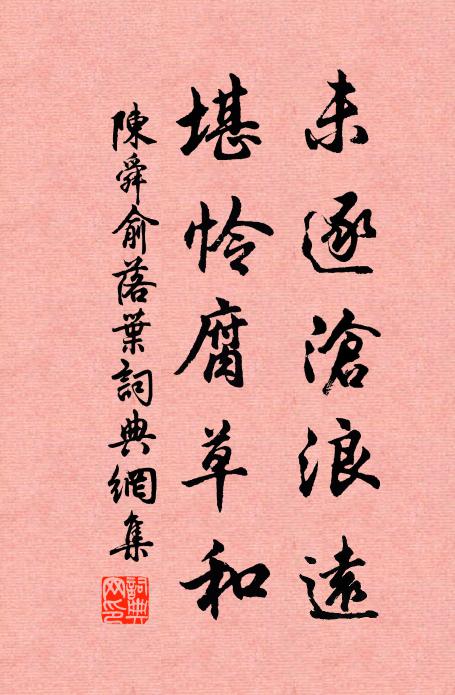 未逐滄浪遠
堪怜腐草和
陳舜俞落葉詞典網集
詞典網印